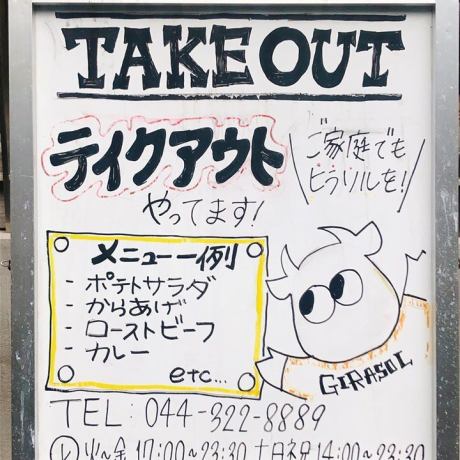 TAKE OUT
テイクアウト
やってます!
ご家庭でも
ヒラソルを!
メニュー一例
- ポテトサラダ
- からあげ
- ローストビーフ
- カレー
etc...
GIRASOL
TEL: 044-322-8889
火~金 17:00~23:30 土日祝 14:00~23:30